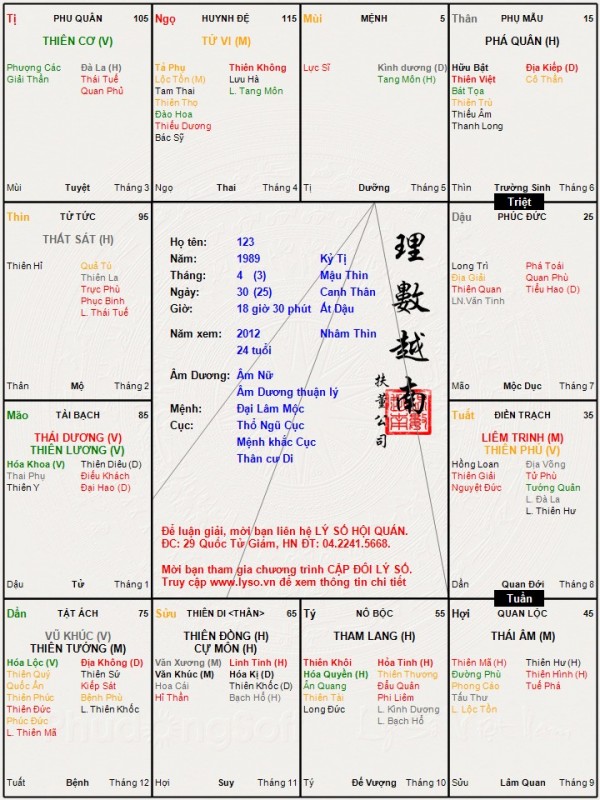 Tị PHU QUÂN 105
THIÊN CƠ (V)
Phượng Các Đà La (H)
Giải Thần Thái Tuế
Quan Phủ
Mùi Tuyệt Tháng 3
Ngọ HUYNH ĐỆ 115
TỬ VI (M)
Tả Phụ Thiên Không
Lộc Tồn (M) Lưu Hà
Tam Thai L. Tang Môn
Thiên Thọ
Đào Hoa
Thiếu Dương
Bác Sỹ
Ngọ Thai Tháng 4
Mùi MỆNH 5
Lực Sĩ Kình dương (D)
Tang Môn (H)
Tị Dưỡng Tháng 5
Thân PHỤ MẪU 15
PHÁ QUÂN (H)
Hữu Bật Địa Kiếp (D)
Thiên Việt Cô Thần
Bát Tọa
Thiên Trù
Thiếu Âm
Thanh Long
Thìn Trường Sinh Tháng 6
Triệt
Thìn TỬ TỨC 95
THẤT SÁT (H)
Thiên Hỉ Quả Tú
Thiên La
Trực Phù
Phục Binh
L. Thái Tuế
Thân Mộ Tháng 2
Họ tên: 123
Năm: 1989 Kỷ Tị
Tháng: 4 (3) Mậu Thìn
Ngày: 30 (25) Canh Thân
Giờ: 18 giờ 30 phút Ất Dậu
Năm xem: 2012 Nhâm Thìn
24 tuổi
Âm Dương: Âm Nữ
Âm Dương thuận lý
Mệnh: Đại Lâm Mộc
Cục: Thổ Ngũ Cục
Mệnh khắc Cục
Thân cư Di
理數越南
扶董公司
Để luận giải, mời bạn liên hệ LÝ SỐ HỘI QUÁN.
ĐC: 29 Quốc Tử Giám, HN ĐT: 04.2241.5668.
Mời bạn tham gia chương trình CẶP ĐÔI LÝ SỐ.
Truy cập www.lyso.vn để xem thông tin chi tiết
Dậu PHÚC ĐỨC 25
Long Trì Phá Toái
Địa Giải Quan Phù
Thiên Quan Tiểu Hao (D)
LN.Văn Tinh
Mão Mộc Dục Tháng 7
Mão TÀI BẠCH 85
THÁI DƯƠNG (V)
THIÊN LƯƠNG (V)
Hóa Khoa (V) Thiên Diêu (D)
Thai Phụ Điếu Khách
Thiên Y Đại Hao (D)
Dậu Tử Tháng 1
Tuất ĐIỀN TRẠCH 35
LIÊM TRINH (M)
THIÊN PHỦ (V)
Hồng Loan Địa Võng
Thiên Giải Tử Phù
Nguyệt Đức Tướng Quân
L. Đà La
L. Thiên Hư
Dần Quan Đới Tháng 8
Tuần
Dần TẬT ÁCH 75
VŨ KHÚC (V)
THIÊN TƯỚNG (M)
Hóa Lộc (V) Địa Không (D)
Thiên Quý Thiên Sứ
Quốc Ấn Kiếp Sát
Thiên Phúc Bệnh Phù
Thiên Đức L. Thiên Khốc
Phúc Đức
L. Thiên Mã
Tuất Bệnh Tháng 12
Sửu THIÊN DI <THÂN> 65
THIÊN ĐỒNG (H)
CỰ MÔN (H)
Văn Xương (M) Linh Tinh (H)
Văn Khúc (M) Hóa Kị (D)
Hoa Cái Thiên Khốc (D)
Hỉ Thần Bạch Hổ (H)
Hợi Suy Tháng 11
Tý NÔ BỘC 55
THAM LANG (H)
Thiên Khôi Hỏa Tinh (H)
Hóa Quyền (H) Thiên Thương
Ân Quang Đẩu Quân
Thiên Tài Phi Liêm
Long Đức L. Kình Dương
L. Bạch Hổ
Tý Đế Vượng Tháng 10
Hợi QUAN LỘC 45
THÁI ÂM (M)
Thiên Mã (H) Thiên Hư (H)
Đường Phù Thiên Hình (H)
Phong Cáo Tuế Phá
Tấu Thư
L. Lộc Tồn
Sửu Lâm Quan Tháng 9